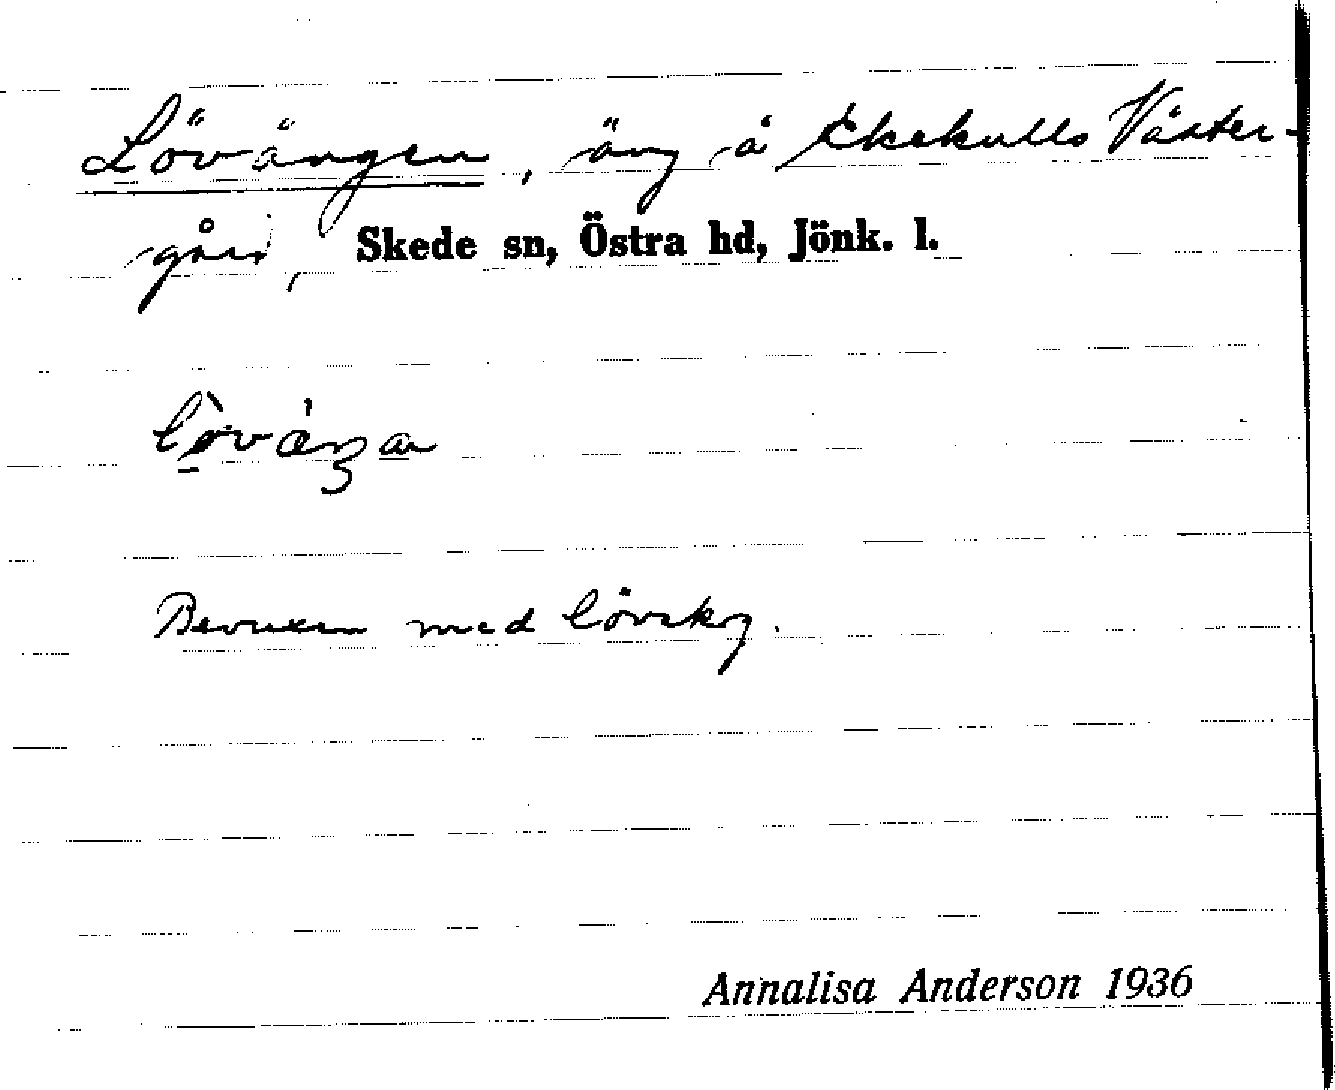 Lövängen, äng å Ekekulls Väster-
gård, Skede sn, Östra hd, Jönk. l.
Bevuxen med lövskog.
Annalisa Anderson 1936